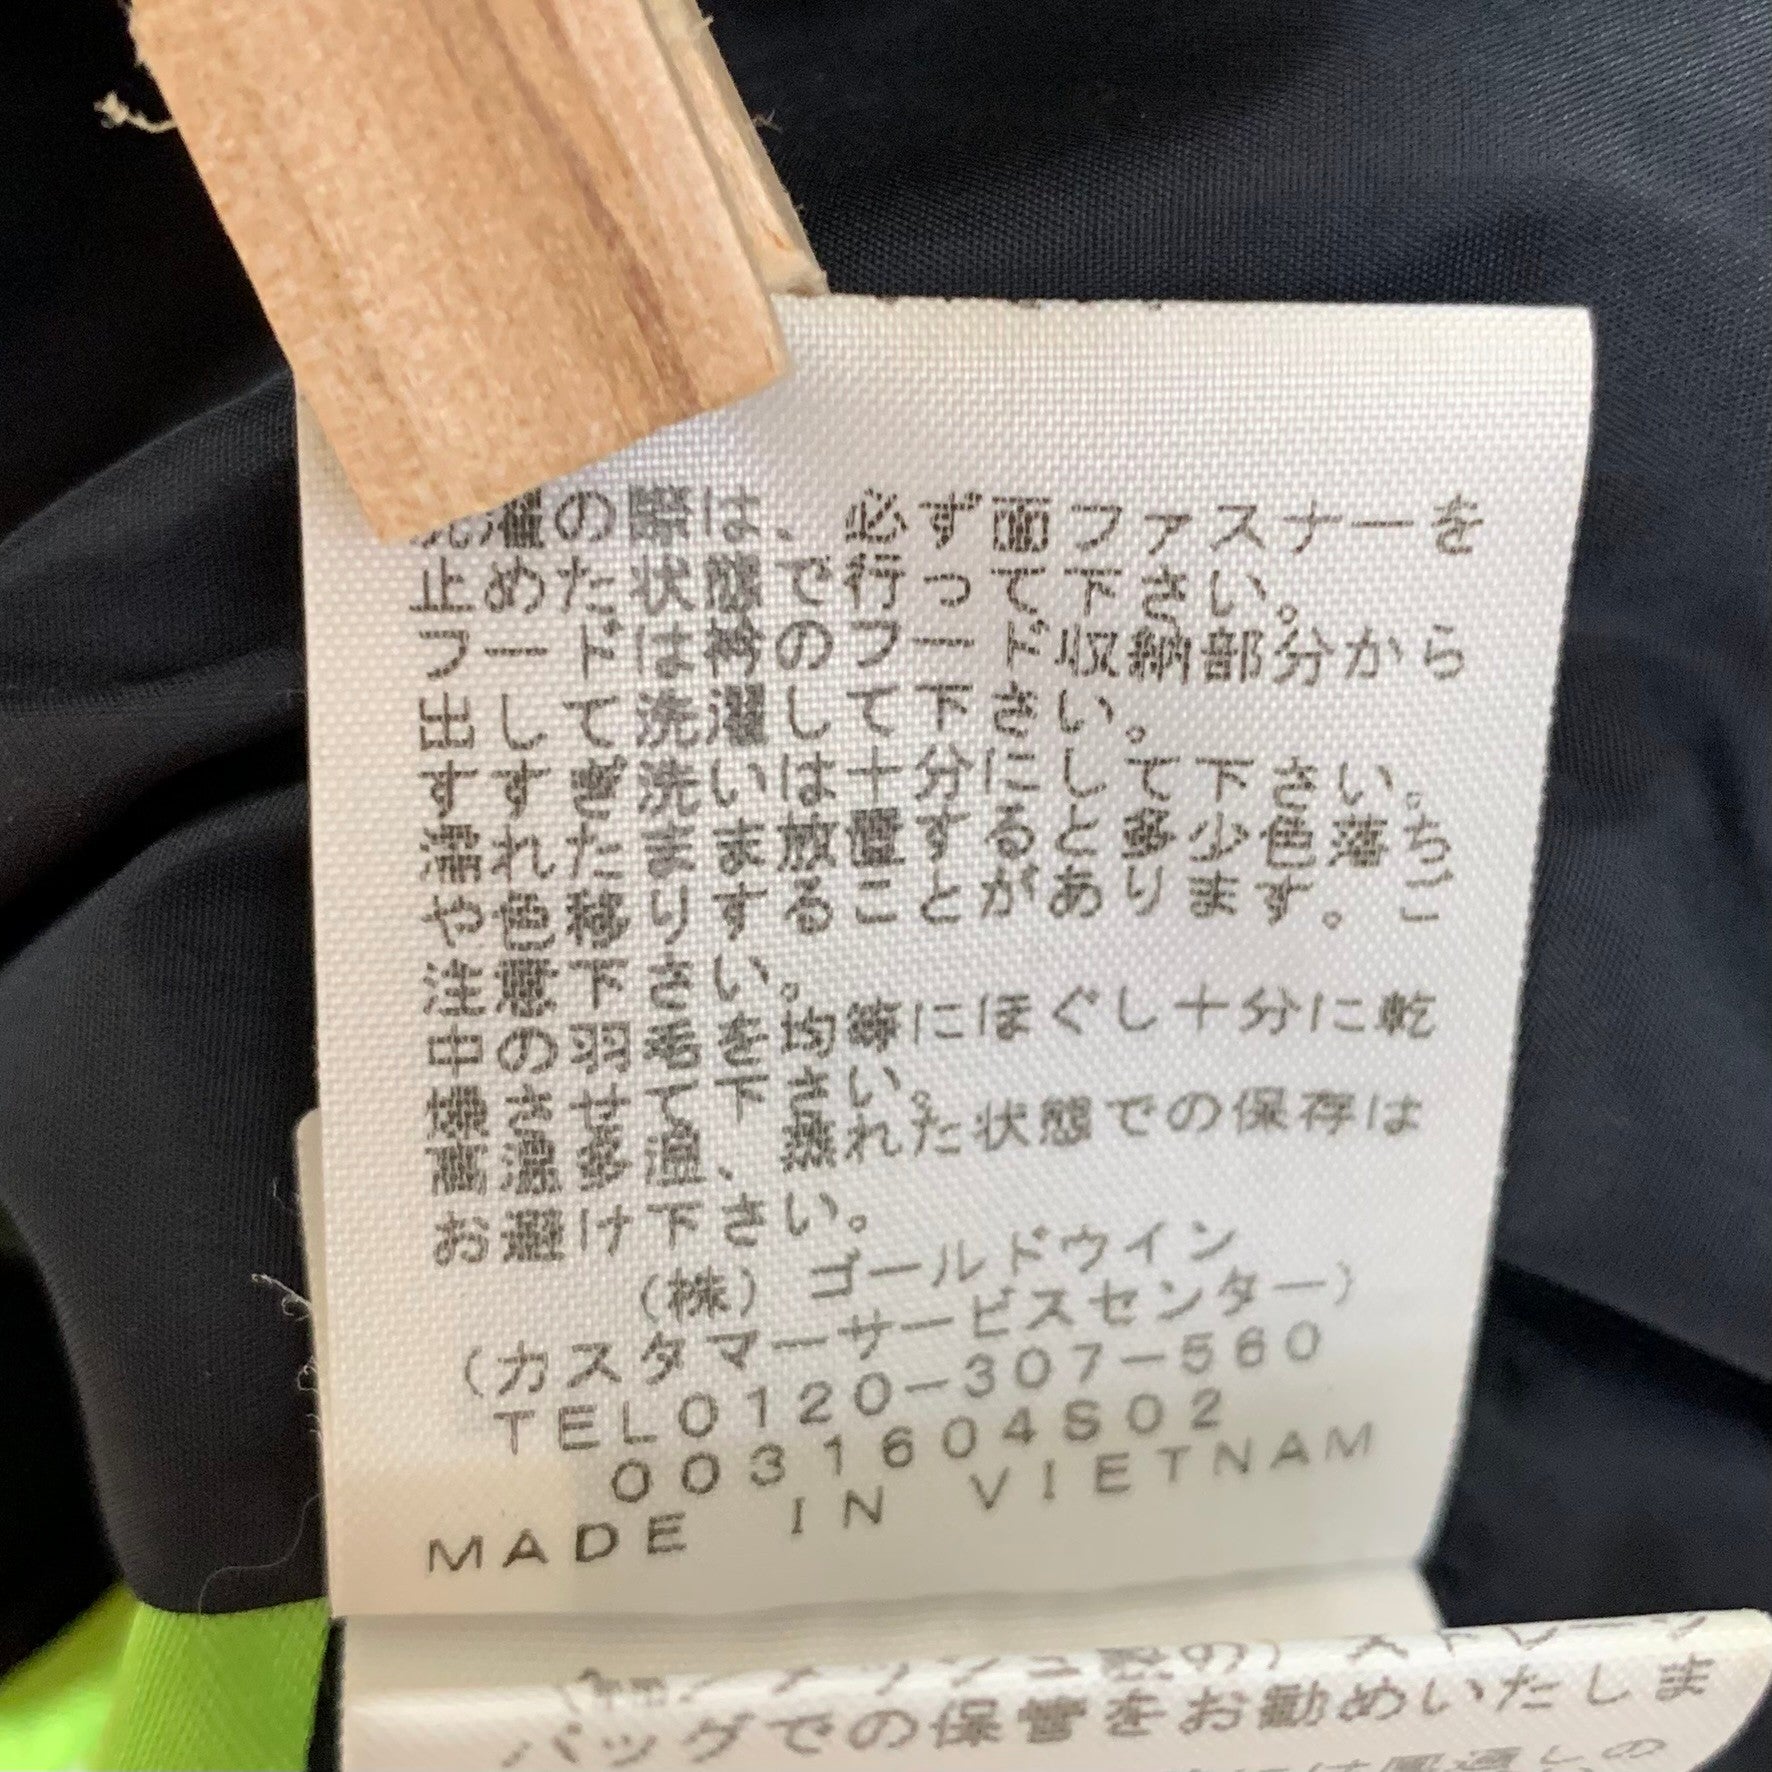 洗濯の際は、必ず面ファスナーを
止めた状態で行って下さい。
フードは衿のフード収納部分から
出して洗濯して下さい。
すすぎ洗いは十分にして下さい。
濡れたまま放置すると多少色落ち
や色移りすることがあります。ご
注意下さい。
中の羽毛を均等にほぐし十分に乾
燥させて下さい。
高温多湿、蒸れた状態での保存は
お避け下さい。
(株)ゴールドウイン
(カスタマーサービスセンター)
TEL0120-307-560
0031604S02
MADE IN VIETNAM
メッシュ製の)ストレージ
バッグでの保管をお勧めいたしま
は風通しの